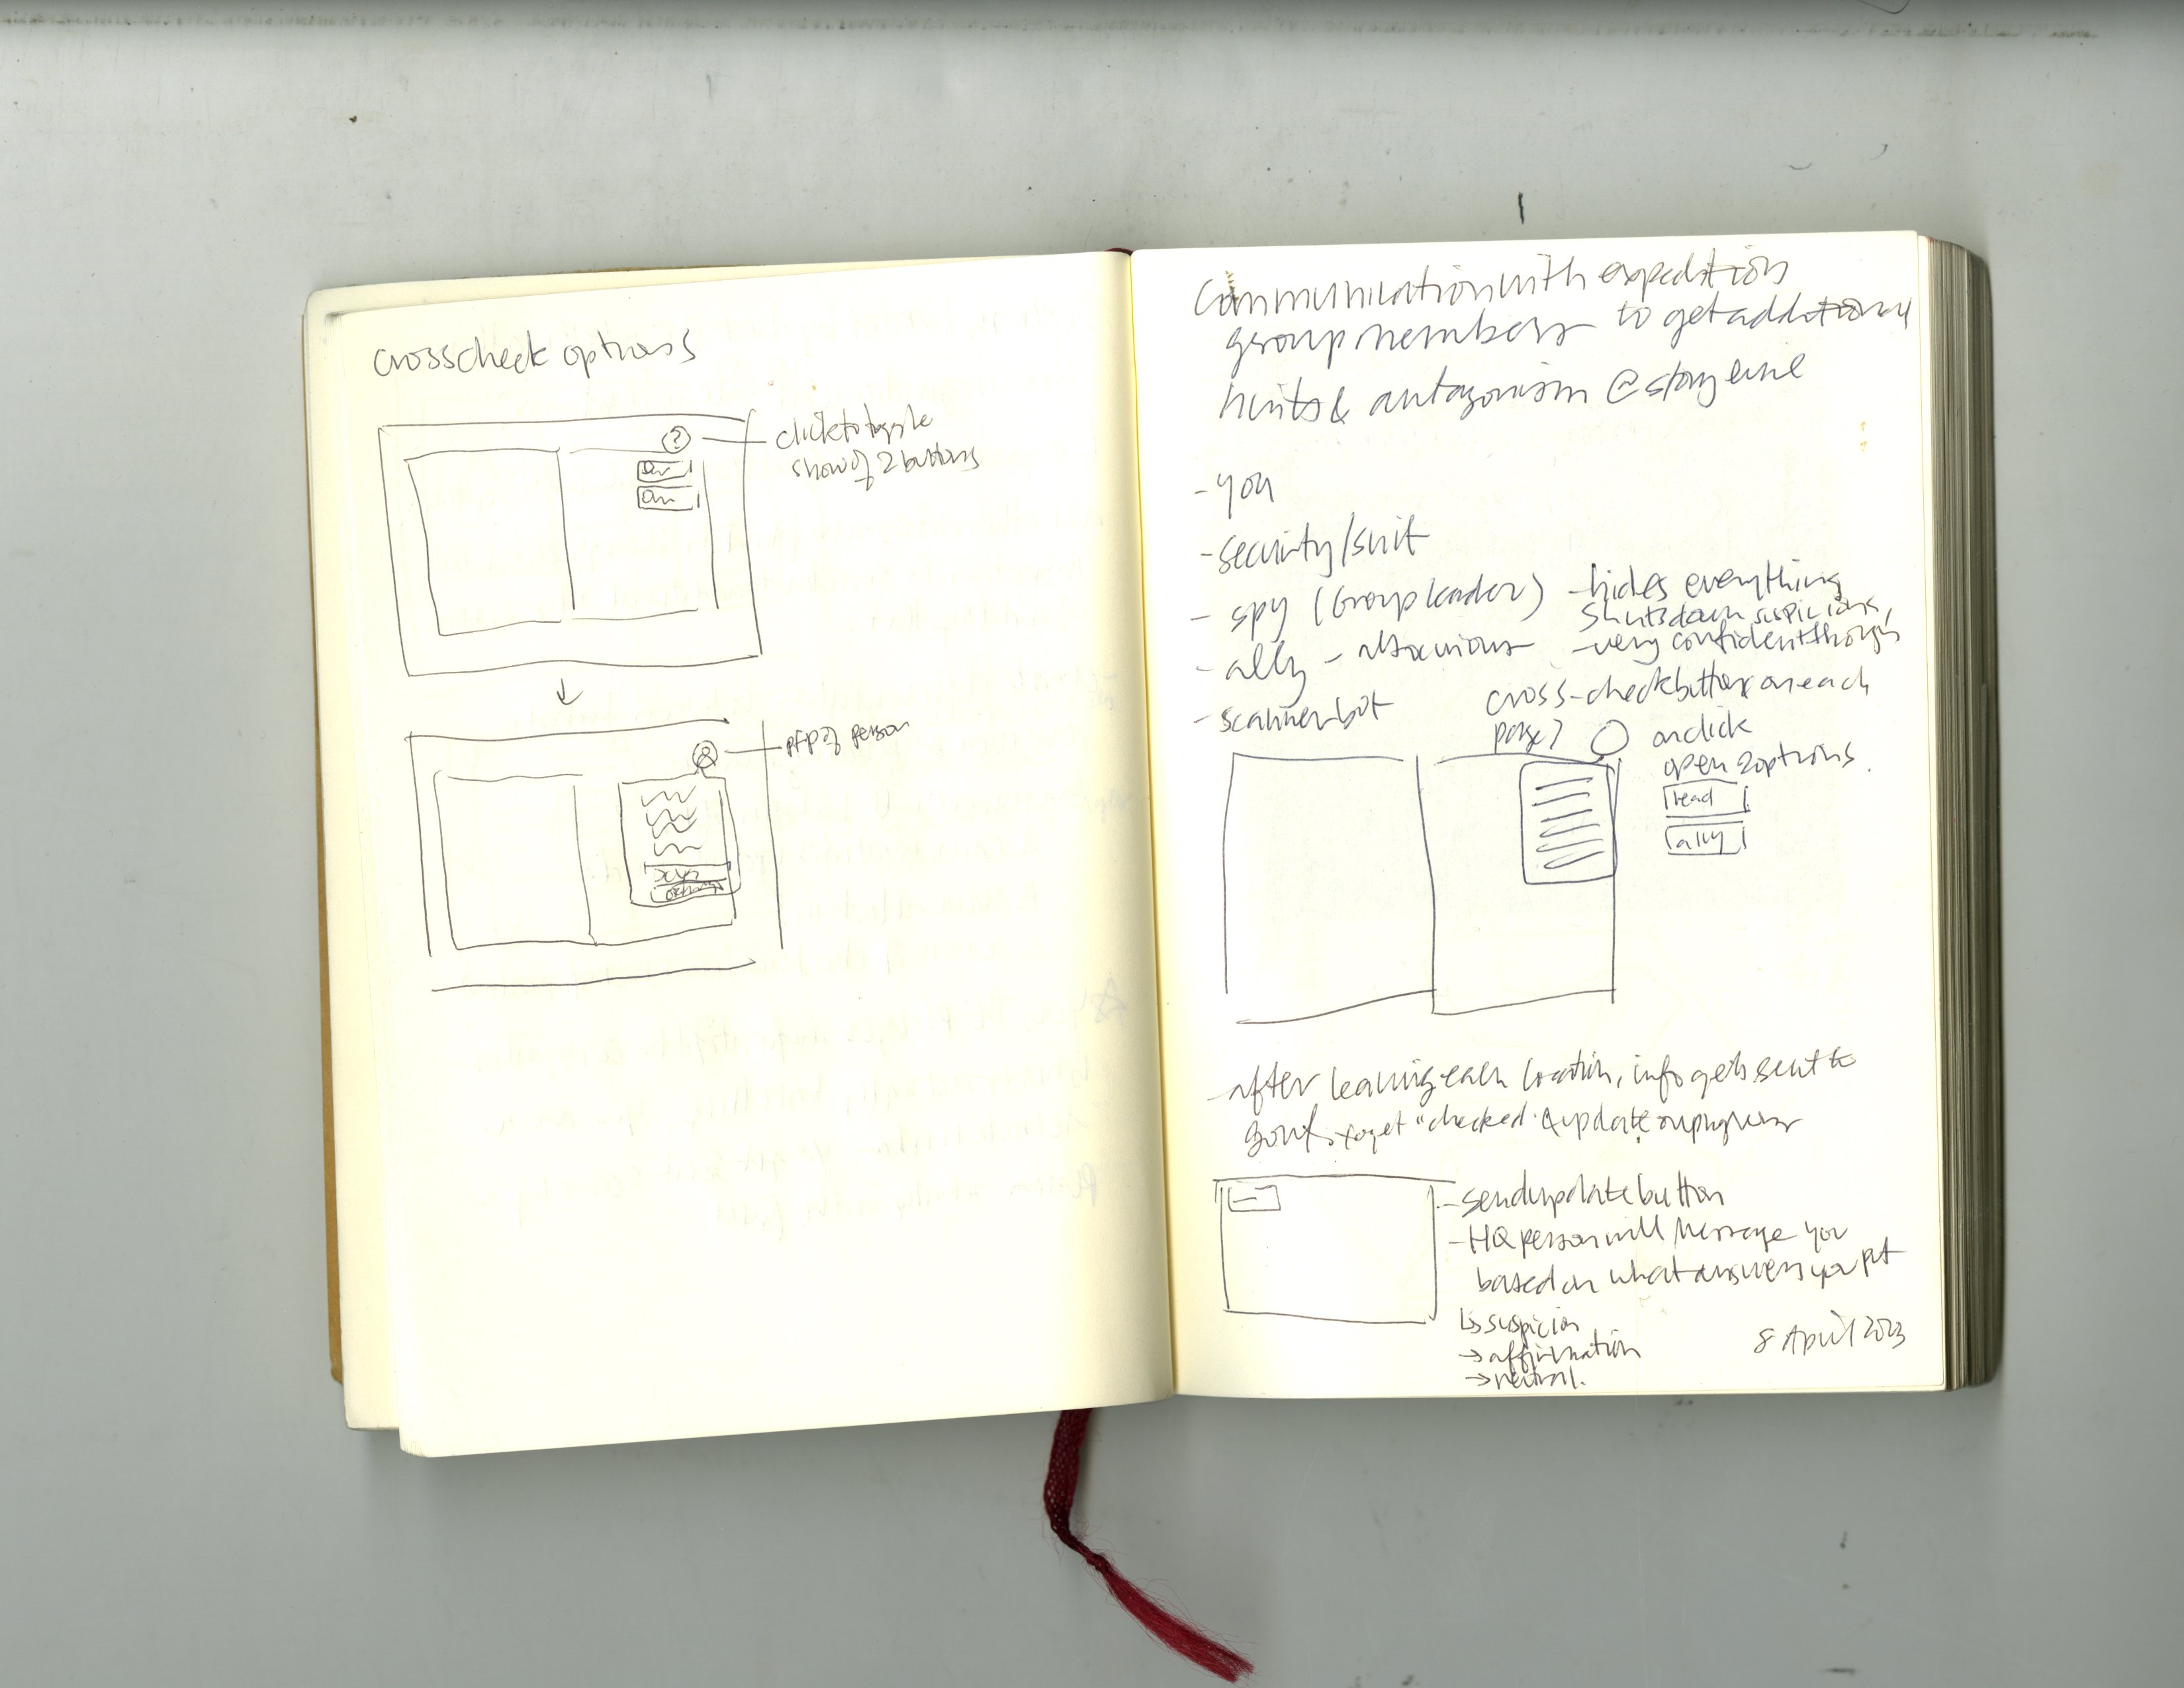 crosscheck options
click to toggle
show of 2 buttons
?
pfp of person
communication with expedition
group members to get additional
hints & antagonism @ storyline
- you
- security/suit
- spy (Group leader) - hides everything
shuts down suspicions,
- ally - - very confident though
- scannerbot
cross-check button on each
page?
on click
open 2 options.
lead
ally
- after leaving each location, info gets sent to
govt. to get "checked" & update on progress
- send update button
- HQ person will message you
based on what answers you put
↳ suspicion
→ affirmation
→ neutral.
8 April 2023